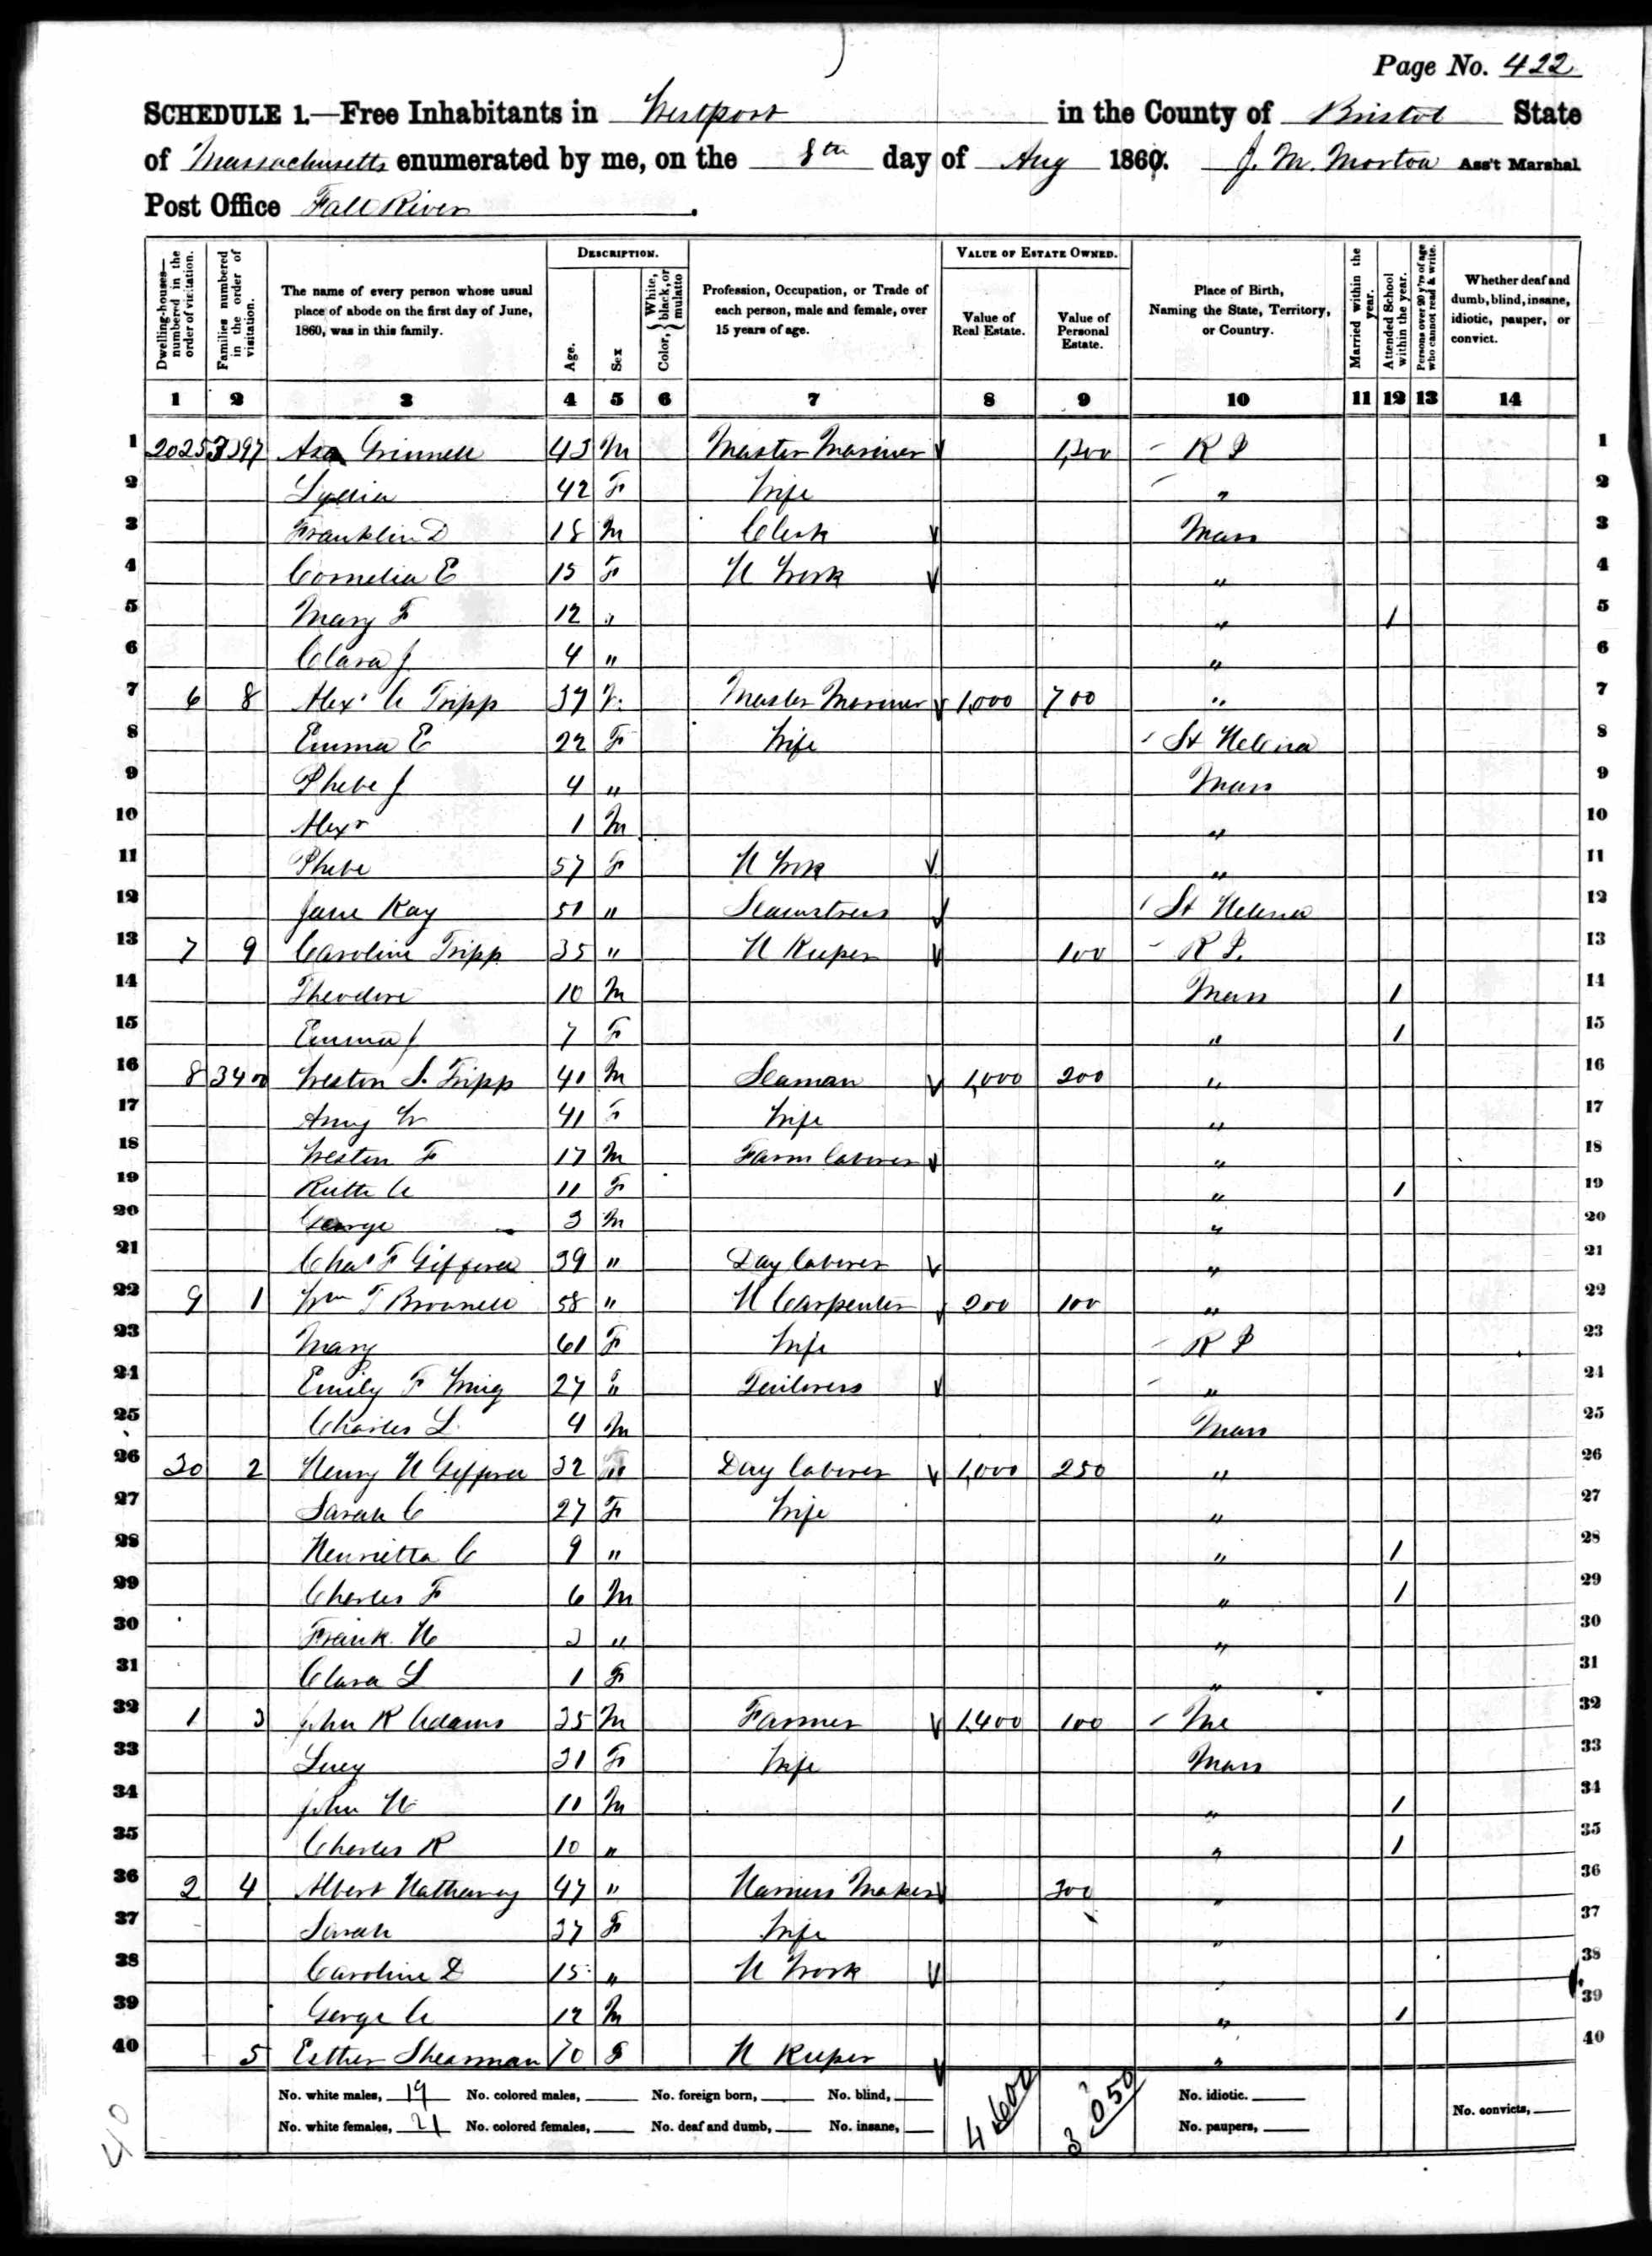 Page No. 422
SCHEDULE 1.—Free Inhabitants in Westport in the County of Bristol State
of Massachusetts enumerated by me, on the 8th day of Aug 1860. J. M. Morton Ass't Marshal
Post Office Fall River.
Dwelling-houses—numbered in the order of visitation. Families numbered in the order of visitation. The name of every person whose usual place of abode on the first day of June, 1860, was in this family. DESCRIPTION. Age. Sex Color, White, black, or mulatto Profession, Occupation, or Trade of each person, male and female, over 15 years of age. VALUE OF ESTATE OWNED. Value of Real Estate. Value of Personal Estate. Place of Birth, Naming the State, Territory, or Country. Married within the year. Attended School within the year. Persons over 20 y'rs of age who cannot read & write. Whether deaf and dumb, blind, insane, idiotic, pauper, or convict.
1 2 3 4 5 6 7 8 9 10 11 12 13 14
1 2025 3397 Asa Grinnell 43 M Master Mariner 1,300 R I 1
2 Lydia 42 F Wife " 2
3 Franklin D 18 M Clerk Mass 3
4 Cornelia E 15 F H Work " 4
5 Mary F 12 " " 1 5
6 Clara J 4 " " 6
7 6 8 Alexr A Tripp 37 Master Mariner 1,000 700 " 7
8 Emma E 22 F Wife St Helena 8
9 Phebe J 4 " Mass 9
10 Alexr 1 M " 10
11 Phebe 57 F H Work " 11
12 Jane Kay 51 " Seamstress St Helena 12
13 7 9 Caroline Tripp 35 " H Keeper 100 R I. 13
14 Theodore 10 M Mass 1 14
15 Emma J 7 F " 1 15
16 8 3400 Weston S. Tripp 41 M Seaman 1,000 200 " 16
17 Amy W 41 F Wife " 17
18 Weston F 17 M Farm laborer " 18
19 Ruth A 11 F " 1 19
20 George 3 M " 20
21 Chas F Gifford 39 " Day laborer " 21
22 9 1 Wm T Brownell 58 " H Carpenter 200 100 " 22
23 Mary 61 F Wife R I 23
24 Emily F Wing 27 " Tailoress " 24
25 Charles L. 4 M Mass 25
26 30 2 Henry H Gifford 32 Day laborer 1,000 250 " 26
27 Sarah C 27 F Wife " 27
28 Henrietta C 9 " " 1 28
29 Charles F 6 M " 1 29
30 Frank H 3 " " 30
31 Clara L 1 F " 31
32 1 3 John R Adams 35 M Farmer 1,400 100 Me 32
33 Lucy 31 F Wife Mass 33
34 John H 11 M " 1 34
35 Charles R 10 " " 1 35
36 2 4 Albert Hathaway 47 " Harness Maker 300 " 36
37 Sarah 37 F Wife " 37
38 Caroline 15 " H Work " 38
39 George A 12 M " 1 39
40 5 Esther Shearman 70 F H Keeper " 40
No. white males, 19 No. colored males, No. foreign born, No. blind, 4600 3050 No. idiotic.
No. white females, 21 No. colored females, No. deaf and dumb, No. insane, No. paupers, No. convicts,
40